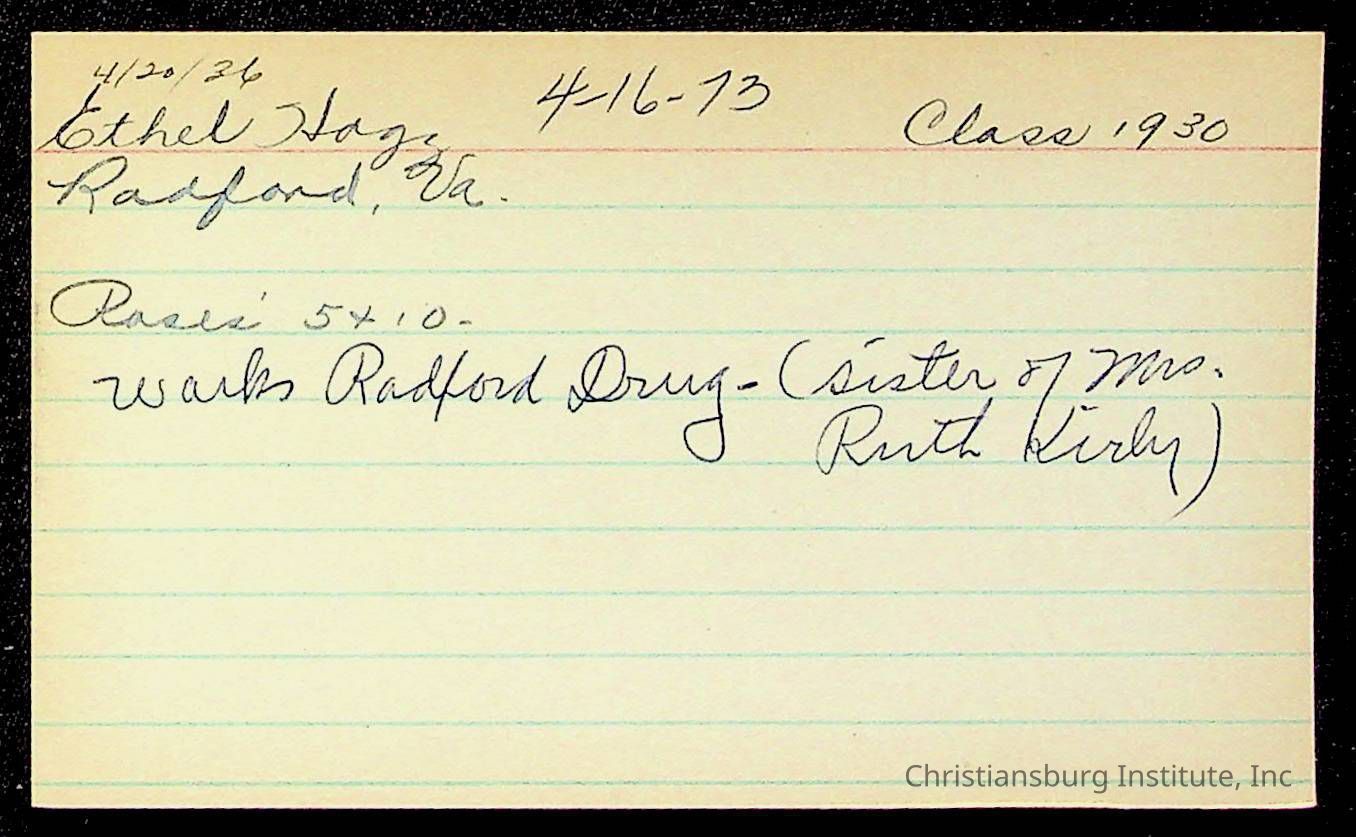 4/20/36
Ethel Hoge 4-16-73 Class 1930
Radford, Va.
Roses' 5 + 10-
works Radford Drug- (sister of Mrs.
Ruth Kirby)
Christiansburg Institute, Inc